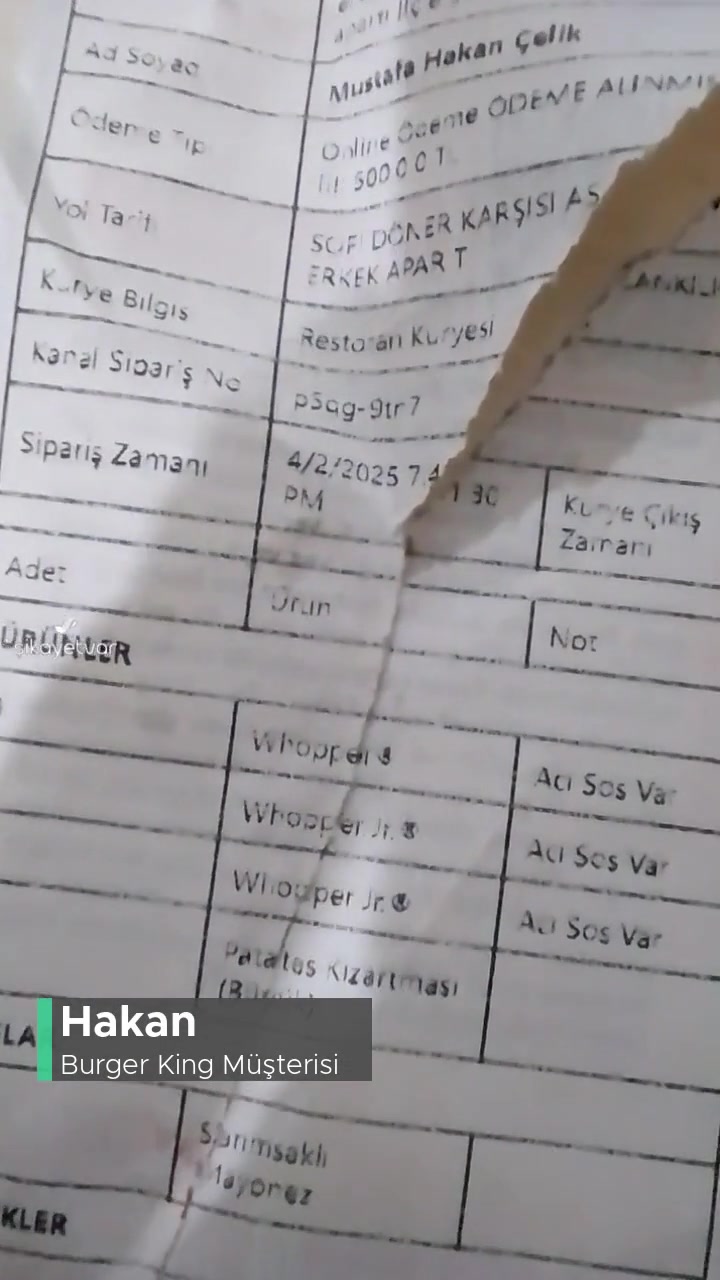 Ad Soyad
Mustafa Hakan Çelik
Ödeme Tip
Online Ödeme ÖDEME ALINMIŞ
500 0 0 T
Yol Tarifi
DÖNER KARŞISI AS
ERKEK APAR T
Kurye Bilgisi
Restoran Kuryesi
Kanal Sipariş No
p5qg-9tr7
Sipariş Zamanı
4/2/2025 7:4
PM
Kurye Çıkış
Zamanı
Adet
Ürün
Not
ÜRÜNLER
şikayetvar
Whopper®
Acı Sos Var
Whopper Jr.®
Acı Sos Var
Whopper Jr.®
Acı Sos Var
Patates Kızartması
Hakan
Burger King Müşterisi
Sarımsaklı
Mayonez
KLER